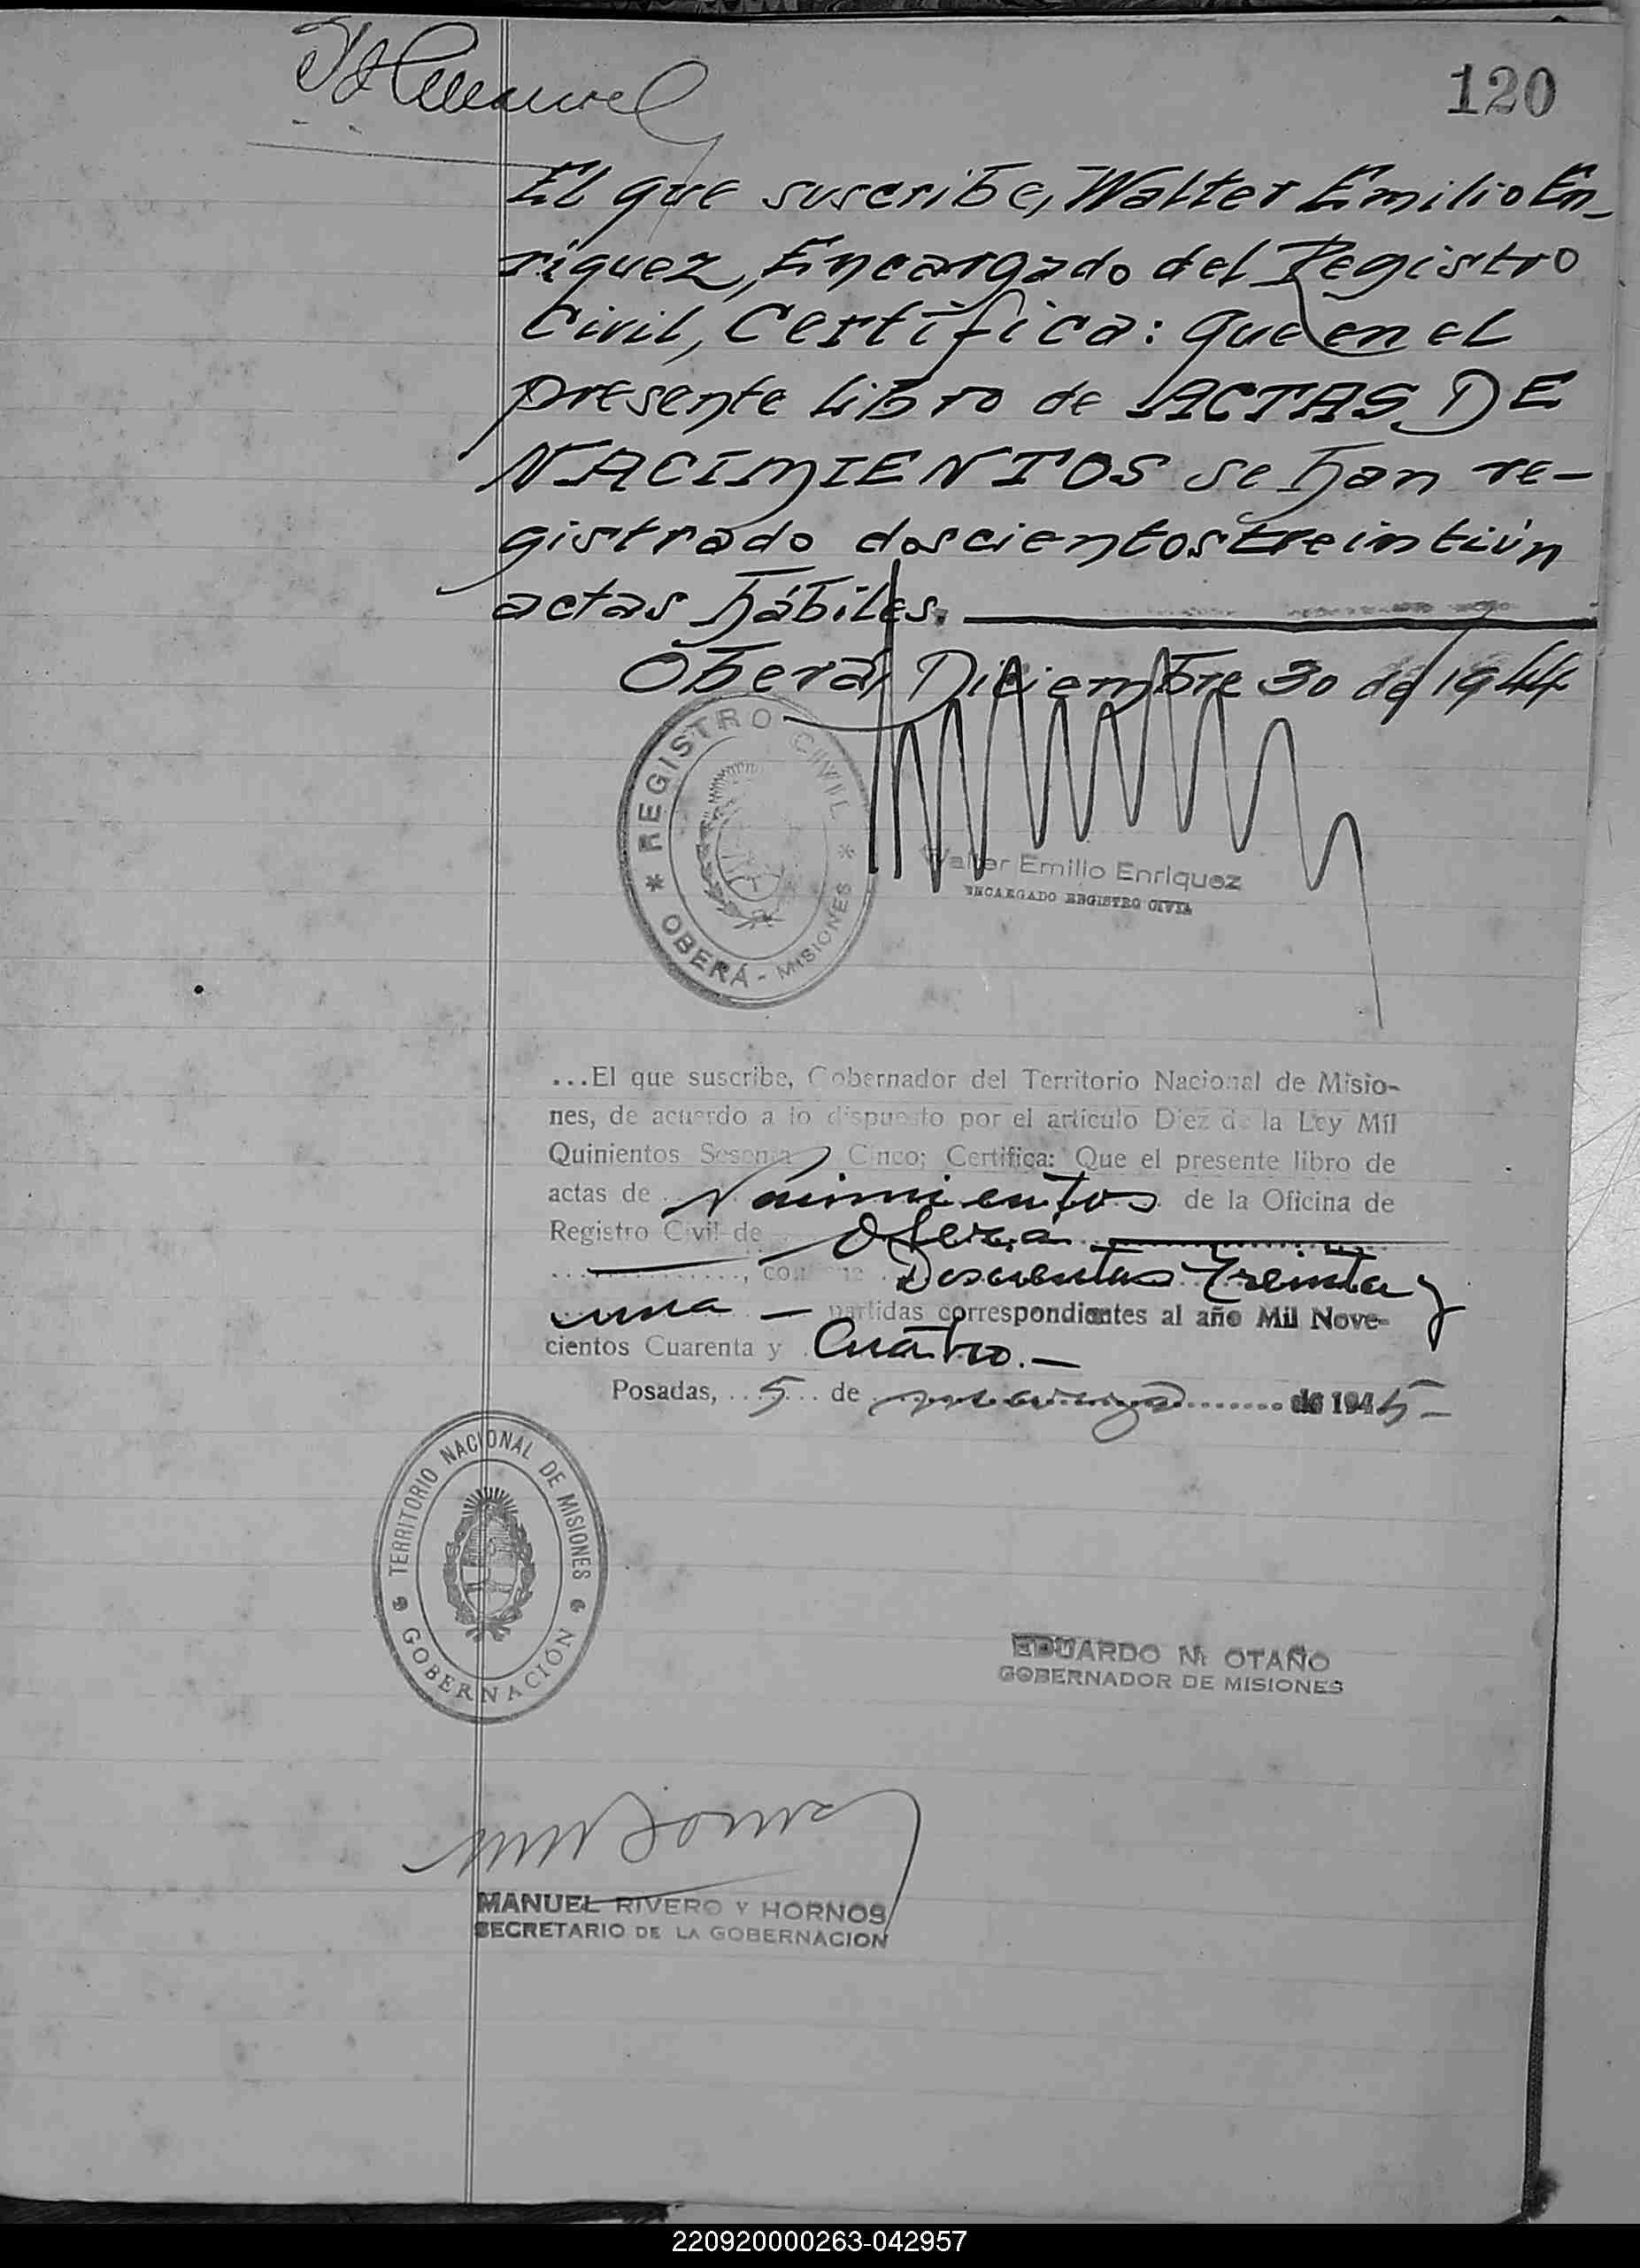 120
El que suscribe, Walter Emilio En-
riquez, Encargado del Registro
Civil, Certifica: que en el
presente libro de ACTAS DE
NACIMIENTOS se han re-
gistrado doscientos treintiún
actas hábiles.
Oberá, Diciembre 30 de 1944
REGISTRO CIVIL
OBERÁ - MISIONES
Walter Emilio Enriquez
ENCARGADO REGISTRO CIVIL
...El que suscribe, Gobernador del Territorio Nacional de Misio-
nes, de acuerdo a lo dispuesto por el artículo Diez de la Ley Mil
Quinientos Sesenta y Cinco; Certifica: Que el presente libro de
actas de Nacimientos de la Oficina de
Registro Civil de Oberá
, contiene Doscientas Treinta y
una — partidas correspondientes al año Mil Nove-
cientos Cuarenta y Cuatro.—
Posadas, 5 de de 1945-
TERRITORIO NACIONAL DE MISIONES
GOBERNACIÓN
EDUARDO N. OTAÑO
GOBERNADOR DE MISIONES
MANUEL RIVERO Y HORNOS
SECRETARIO DE LA GOBERNACION
220920000263-042957